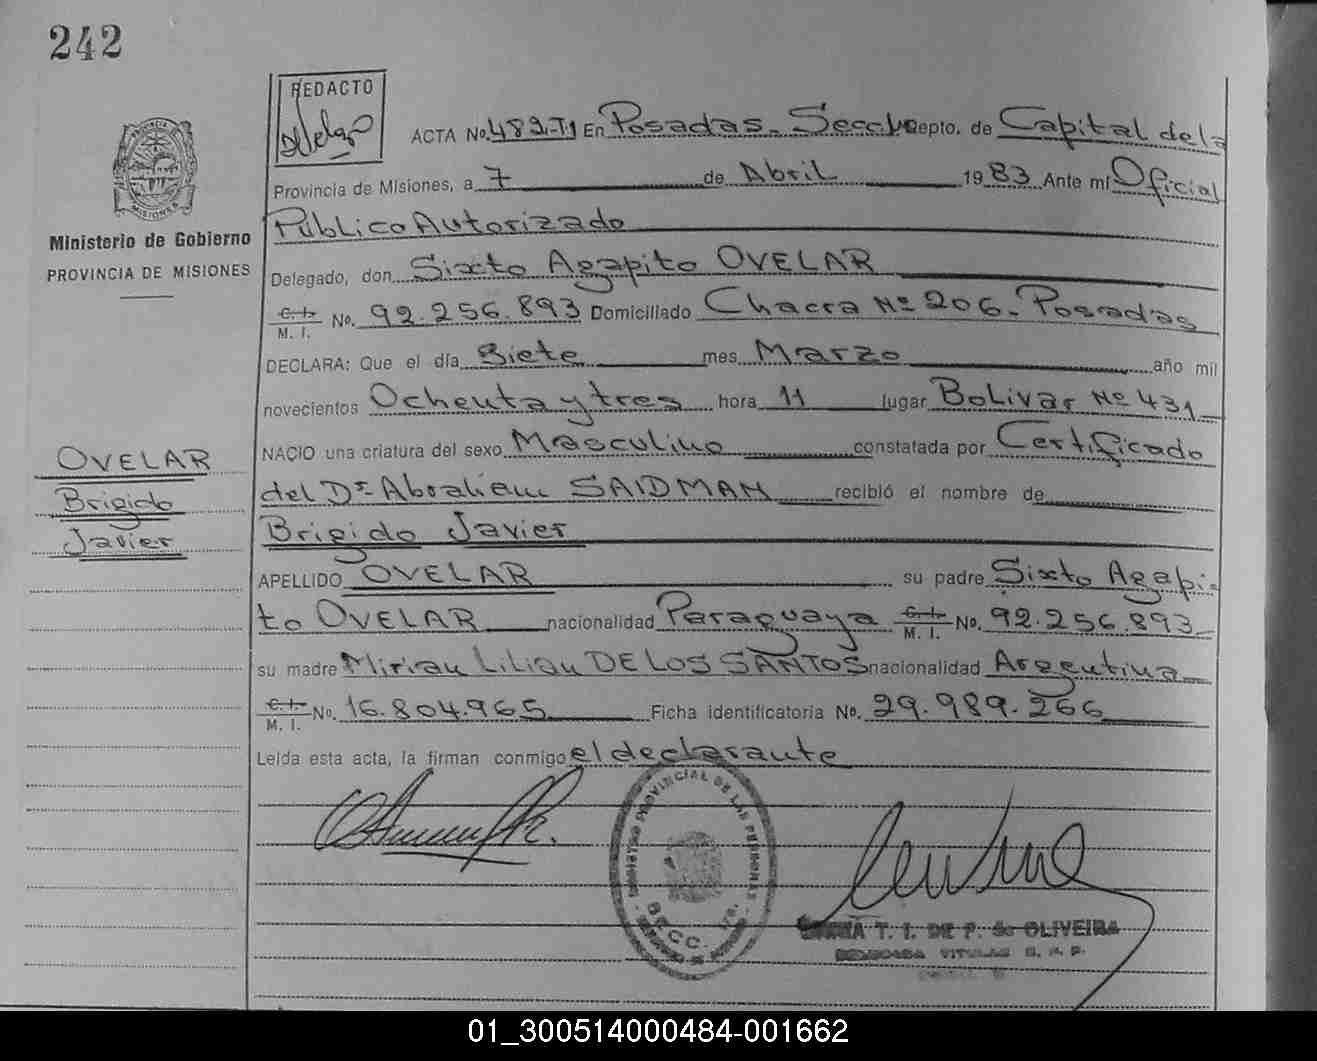 242
REDACTO
Delegado
ACTA No. 482-T1 En Posadas - Secc. 1ª Depto. de Capital de la
Provincia de Misiones, a 7 de Abril 1983 Ante mí Oficial
Público Autorizado
Delegado, don Sixto Agapito OVELAR
C. I. M. I. No. 92.256.893 Domiciliado Chacra Nº 206 - Posadas
DECLARA: Que el día Siete mes Marzo año mil
novecientos Ochenta y tres hora 11 lugar Bolivar Nº 431
NACIO una criatura del sexo Masculino constatada por Certificado
del Dr. Abraham SAIDMAN recibió el nombre de
Brigido Javier
APELLIDO OVELAR su padre Sixto Agapi-
to OVELAR nacionalidad Paraguaya C. I. M. I. No. 92.256.893
su madre Mirian Lilian DE LOS SANTOS nacionalidad Argentina
C. I. M. I. No. 16.804.965 Ficha identificatoria No. 29.989.266
Leída esta acta, la firman conmigo el declarante
PROVINCIA DE
MISIONES
Ministerio de Gobierno
PROVINCIA DE MISIONES
OVELAR
Brigido
Javier
REGISTRO PROVINCIAL DE LAS PERSONAS
SECC. 1ra.
T. I. DE P. de OLIVEIRA
TITULAR R. P. P.
01_300514000484-001662